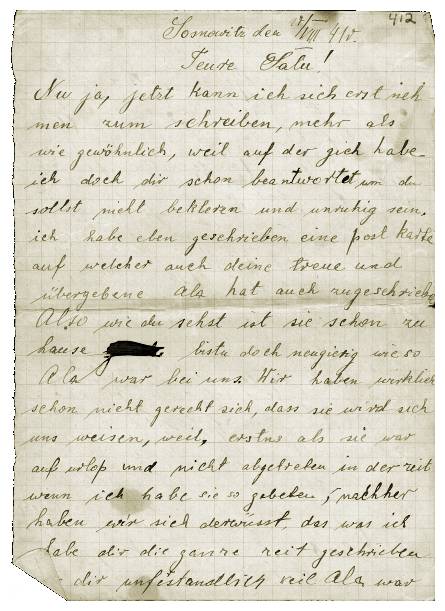 412
Sosnowitz den 10/VIII 41r.
Teure Sala!
Nu ja, jetzt kann ich sich erst neh
men zum schreiben, mehr als
wie gewöhnlich, weil auf der gich habe
ich doch dir schon beantwortet um du
sollst nicht bekleren und unruhig sein.
ich habe eben geschrieben eine post karte
auf welcher auch deine treue und
übergebene Ala hat auch zugeschrieben
Also wie du sehst ist sie schon zu
hause bistu doch neugierig wie so
Ala war bei uns. Wir haben wirklich
schon nicht gerecht sich, dass sie wird sich
uns weisen, weil, erstns als sie war
auf urlop und nicht abgetreten in der zeit
wenn ich habe sie so gebeten, nachher
haben wir sich derwüsst, das was ich
habe dir die ganze zeit geschrieben
dir unfistandlich veil Ala war